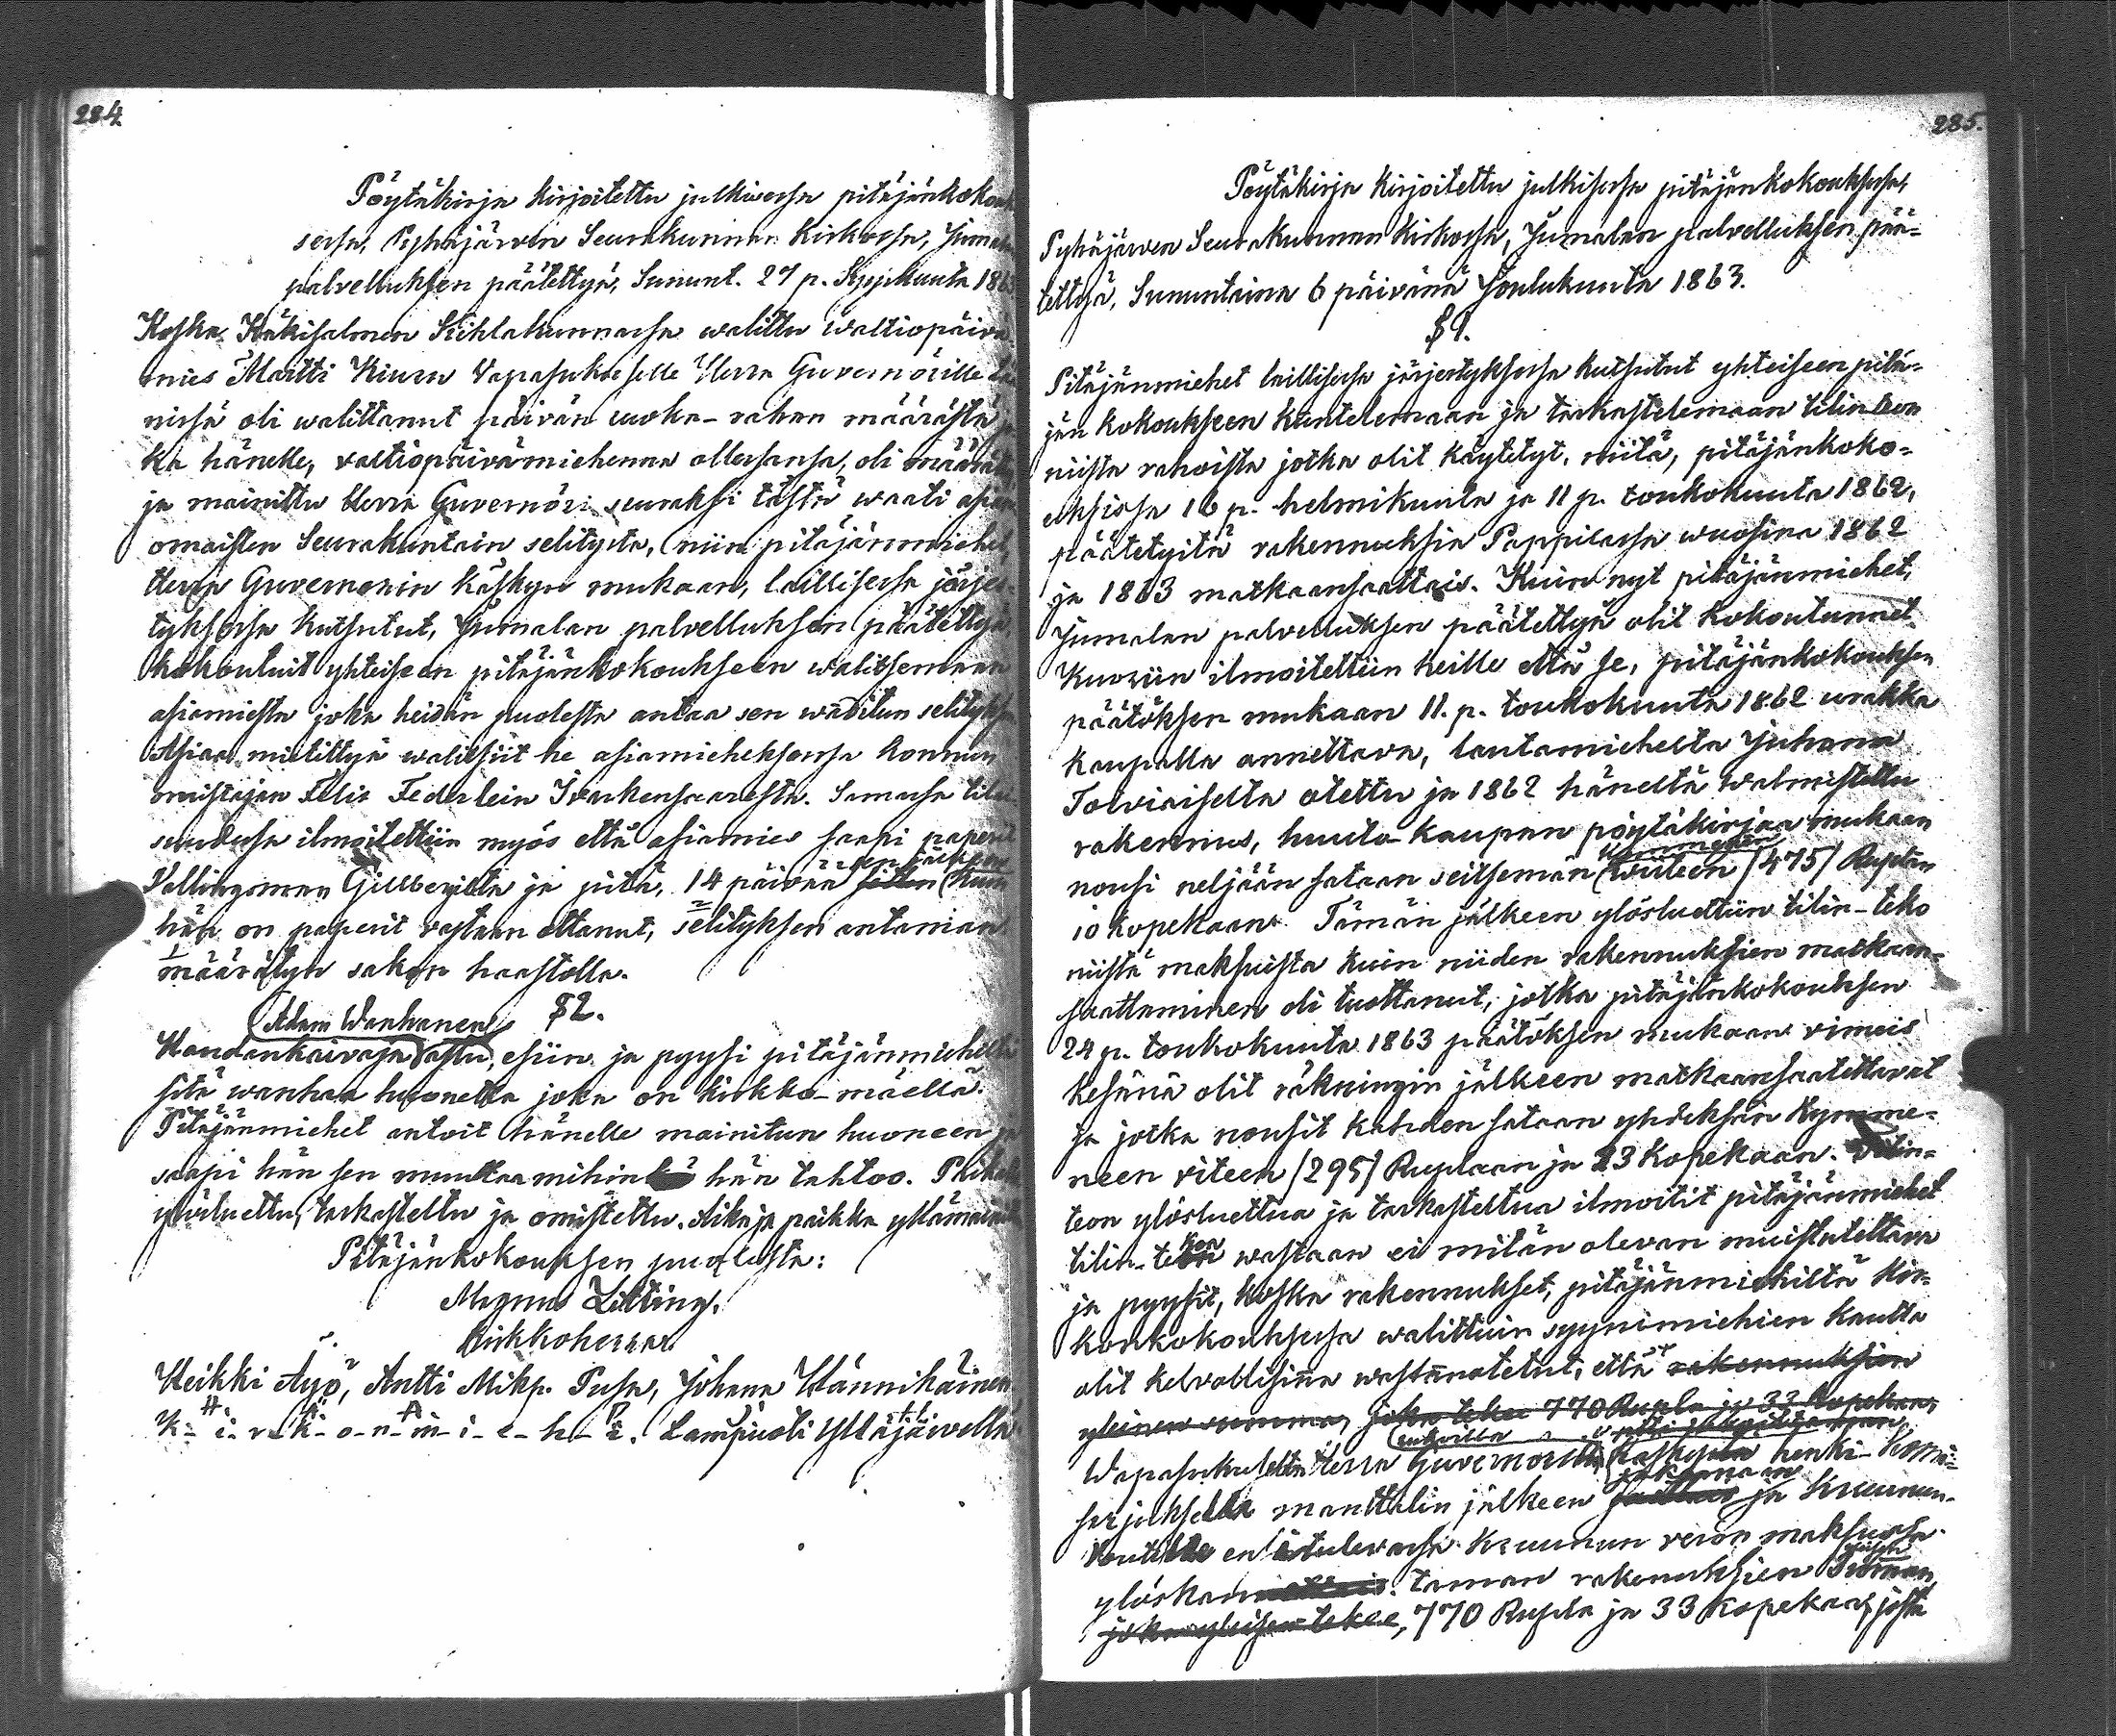 284
Pöytäkirja kirjoitettu julkisessa pitäjänkokouk
sessa, Pyhäjärven Seurakunnan Kirkossa, Jumalan
palvelluksen päätettyä, Sunnt. 27 p. Syyskuuta 1863
Koska Käkisalmen Kihlakunnassa walittu waltiopäivä
mies Martti Kiuru Vapasukuiselle Herra Guvernörille
nissä oli walittanut päivän ruoka-rahan määrästä
ka hänelle, valtiopäivämiehenna ollessansa, oli määrätty
ja mainittu Herra Guvernöri seuraksi tästä waati asian
omaisten Seurakuntain selitystä, niin pitäjänmiehet,
Herra Guvernorin käskyn mukaan, laillisessa järjes-
tyksessä kutsutut, Jumalan palvelluksen päätettyä,
kokoutuit yhteiseen pitäjänkokoukseen walitsemaan
asiamiestä joka heidän puolesta antaa sen waditun selityksen
Asiaa mietittyä walitsiit he asiamieheksensä Konnun
omistajan Felix Federlein Ivaskensaaresta. Samassa tilai-
suudessa ilmoitettiin myös että asiamies saapi paperit
Vallingsman Gillbergiltä ja pitä, 14 päivää sen jälkeen kuin
hän on paperit vastaan ottanut, selityksen antaman
määrätyn sakon haastolla.
§2.
Adam Wanhanen
Haudankaivaja astu esiin ja pyysi pitäjänmiehiltä
sitä wanhaa huonetta joka on kirkko-mäellä.
Pitäjänmiehet antoit hänelle mainitun huoneen ja
saapi hän sen muuttaa mihin hän tahtoo. Paikalla
ylösluettu, tarkastettu ja omistettu. Aika ja paikka yllämainittu
Pitäjänkokouksen puolesta:
Magnus Litting.
Kirkkoherra
Heikki Äyö, Antti Mikp. Pusa, Johana Hännikäinen
K-i-r-k-o-n-m-i-e-h-i-ä. Lampuoti Ylläjärvellä
285.
Pöytäkirja kirjoitettu julkisessa pitäjänkokouksessa,
Pyhäjärven Seurakunnan kirkossa, Jumalan palvelluksen pää-
tettyä, Sunnuntaina 6 päivänä Joulukuuta 1863.
§1.
Pitäjänmiehet laillisessa järjestyksessä kutsutut yhteiseen pitä-
jän kokoukseen kuntelemaan ja tarkastelemaan tilinteon
niistä rahoista jotka olit käytetyt, niitä, pitäjänkoko-
uksissa 16 p. helmikuuta ja 11 p. toukokuuta 1862,
päätetyitä rakennuksia Pappilassa wuosina 1862
ja 1863 matkaansaattais. Kuin nyt pitäjänmiehet,
Jumalan palvelluksen päätettyä olit kokoutunnet
Kuoriin ilmoitettiin heille että se, pitäjänkokouksen
päätöksen mukaan 11. p. toukokuuta 1862 urakka
kaupalla annettava, lautamieheltä Juhana
Toiviaiselta otettu ja 1862 häneltä walmistettu
rakennus, huuto-kaupan pöytäkirjan mukaan
nousi neljään sataan seitsemän kymmenen wiiteen (475) Ruplan
10 kopekaan. Tämän jälkeen ylösluettiin tilin-teko
niistä maksuista kuin niiden rakennuksien matkaan-
saattaminen oli tuottanut, jotka pitäjänkokouksen
24 p. toukokuuta 1863 päätöksen mukaan vimeis
kesänä olit räkningin jälkeen matkaansaatettavat
ja jotka nousit kahden sataan yhdeksän kymme-
neen viteen (295) Ruplaan ja 23 kopekaan. Tilin-
teon ylösluettua ja tarkastettua ilmoitit pitäjänmiehet
tilin-tekoa wastaan ei mitän olevan muistutettava
ja pyysit, koska rakennukset, pitäjänmiehiltä kir-
konkokouksessa walittuin syynimiehien kautta
olit kelvollisina wastaanotetut, että rakennuksien
yleinen summa, joka tekee 770 Rupla ja 33 Kopekaa,
Wapasukuisella Herra Guvernorilla käskyllä henki-
kirjoituksella manttalin jälkeen ja Kruunun-
voutilla ensitulevassa kruunun veron maksussa
ylöskannettais. taman rakenuksien Summan,
joka yleisen tekee, 770 Rupla ja 33 kopekaa, josta